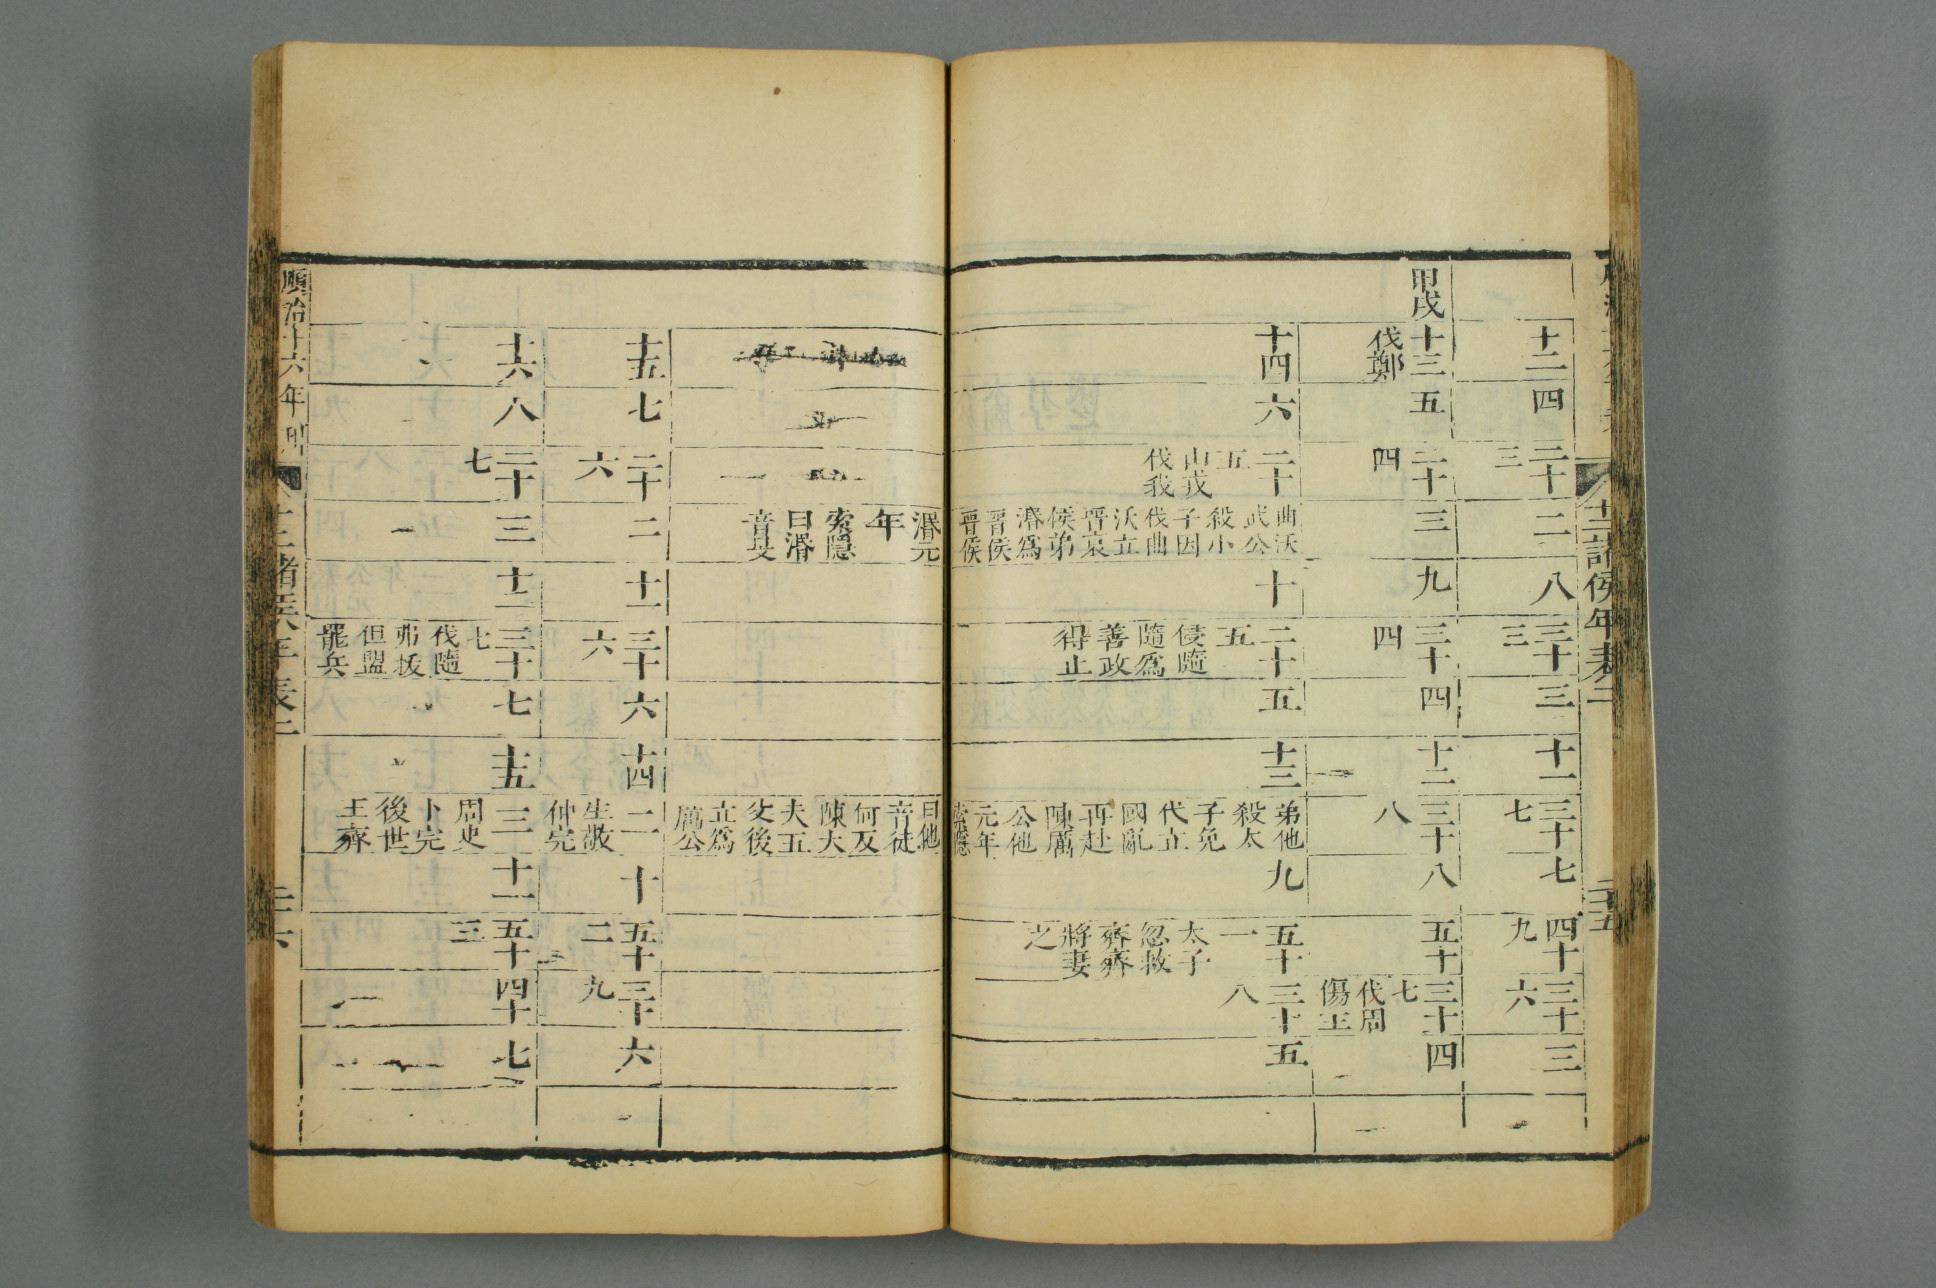 十二諸侯年表二
二十五
十二
四
二十
三
二
八
三十
三
三
十一
三十
七
七
四十
九
三十
六
三
甲戌
十三
伐鄭
五
二十
四
三
九
三十
四
四
十二
三十
八
八
五十
三十
七
伐周
傷王
四
十四
六
二十
五
山戎
伐我
曲沃
武公
殺小
子因
伐曲
沃立
晉哀
侯弟
湣爲
晉侯
十
三十
五
侵隨
隨爲
善政
得止
五
十三
弟他
殺太
子免
代立
國亂
再赴
陳厲
公他
元年
索隱
九
五十
一
太子
忽救
齊齊
將妻
之
三十
八
五
湣元
年
索隱
曰湣
音旻
曰他
音徒
何反
陳大
夫五
父後
立爲
厲公
十五
七
二十
六
二
十一
三十
六
六
十四
二
生敬
仲完
十
五十
二
三十
九
六
十六
八
二十
七
三
十二
三十
七
伐隨
弗拔
但盟
罷兵
七
十五
三
周史
卜完
後世
王齊
十一
五十
三
四十
七
順治十六年刊
十二諸侯年表二
二十六